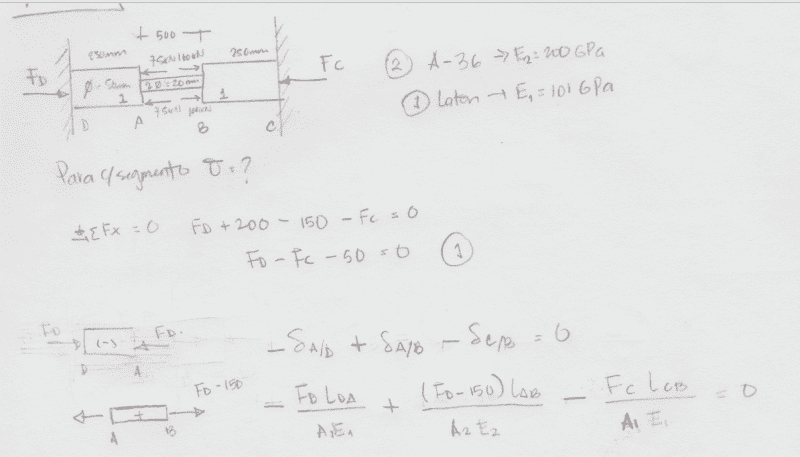 500
250mm
75kN 100kN
250mm
FD
FC
2 Ø=20mm
1
1
75kN 100kN
D A B C
② A-36 → E₂=200GPa
① Laton → E₁=101GPa
Para c/segmento σ=?
ΣFx=0 FD+200-150-FC=0
FD-FC-50=0 ①
FD (-) FD.
D A
-δA/D + δA/B - δC/B = 0
FD-150
+
A B
- FD LDA / A₁E₁ + (FD-150) LAB / A₂E₂ - FC LCB / A₁E₁ = 0